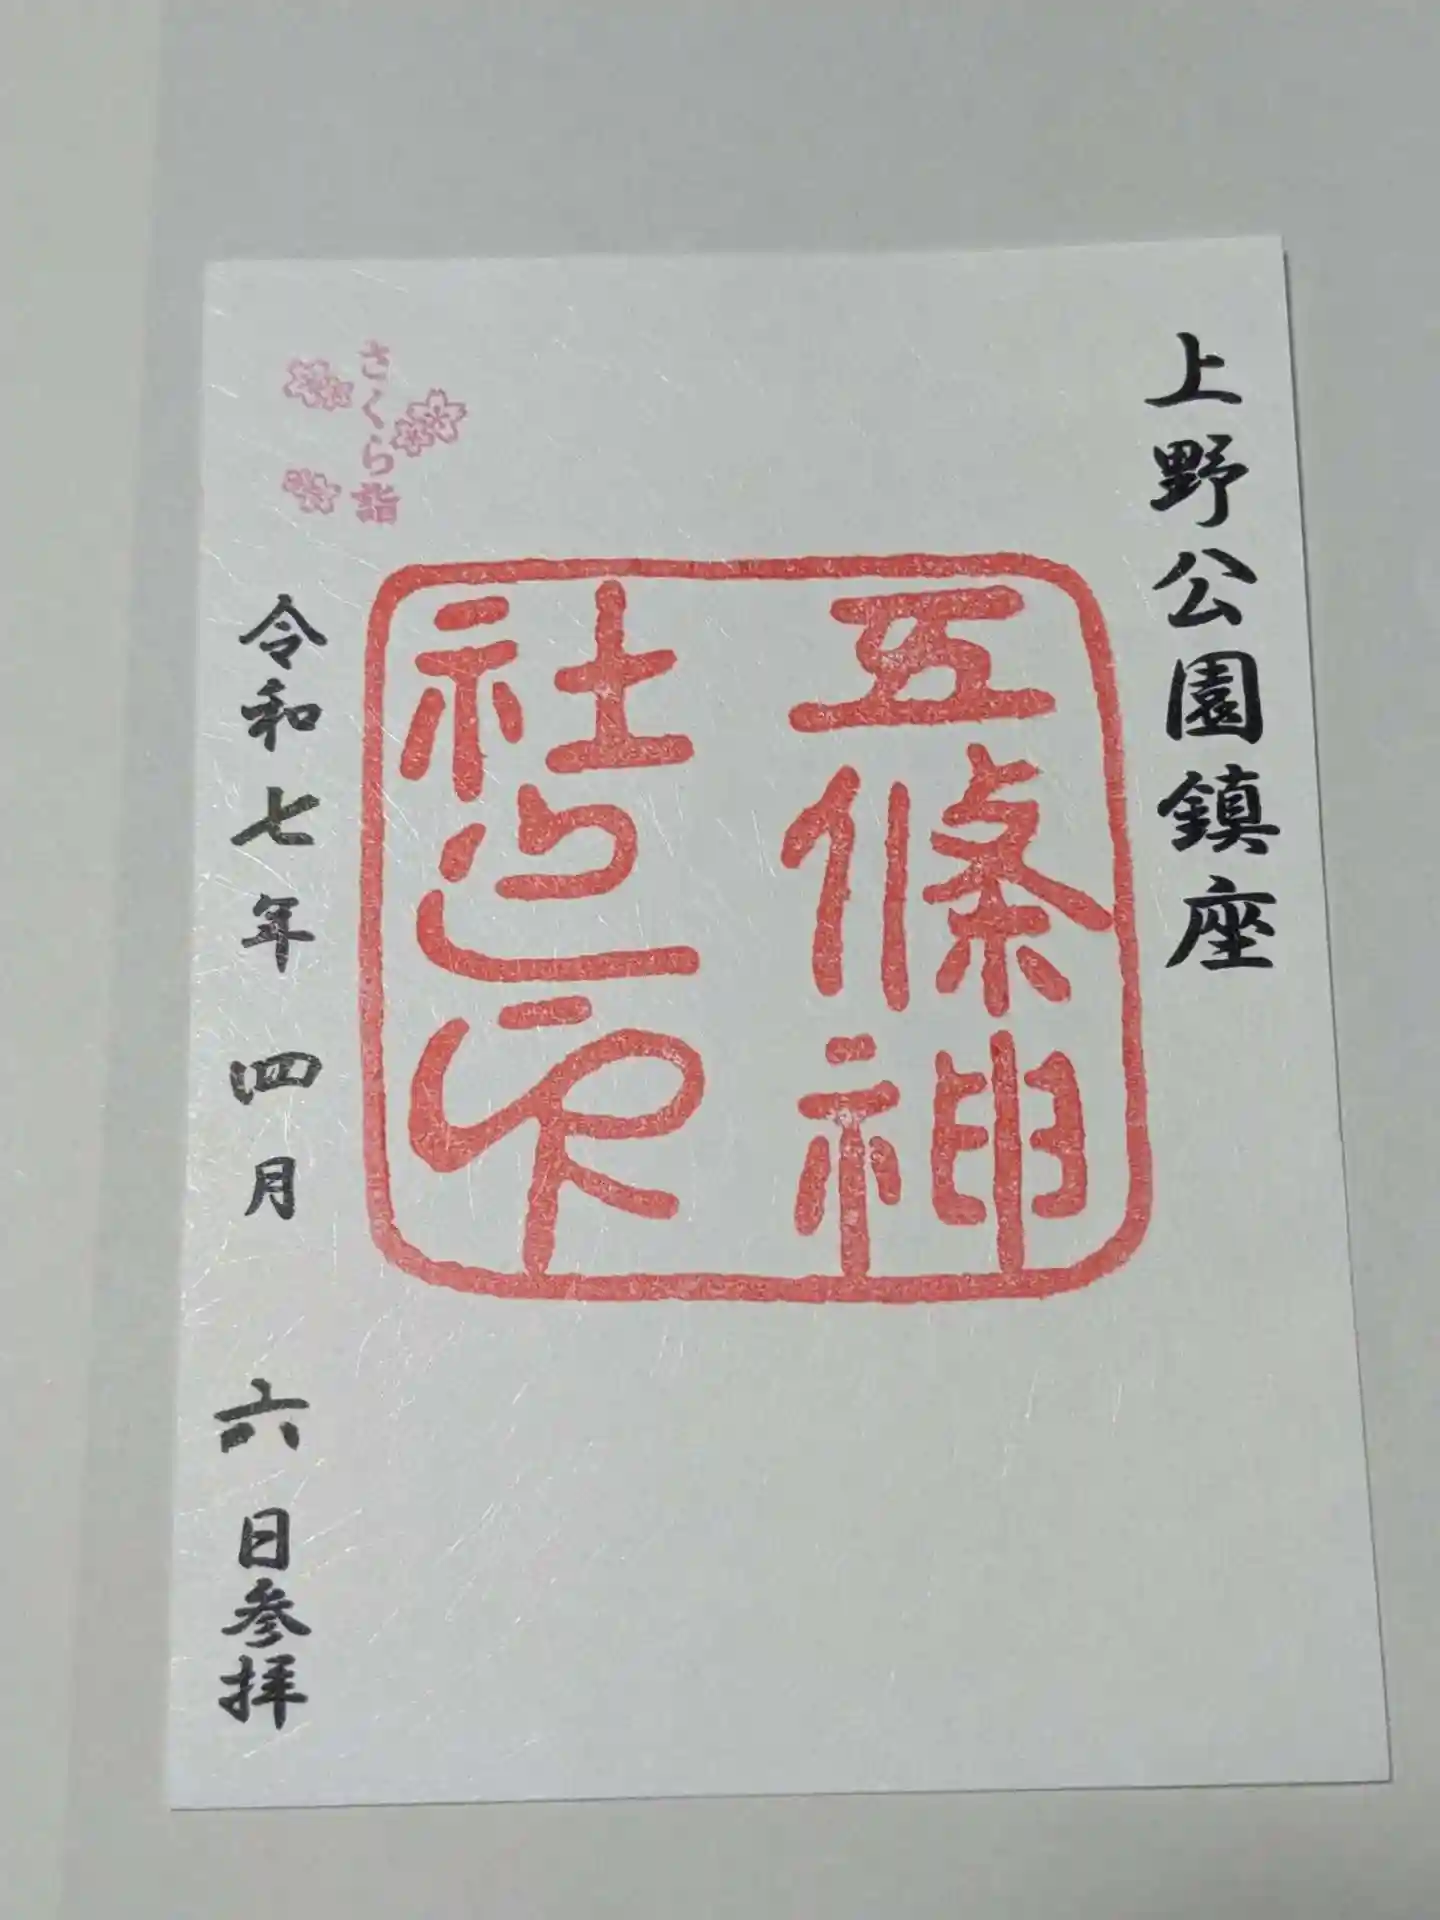 上野公園鎮座
五條神
社之印
さくら詣
令和七年 四月 六日参拝